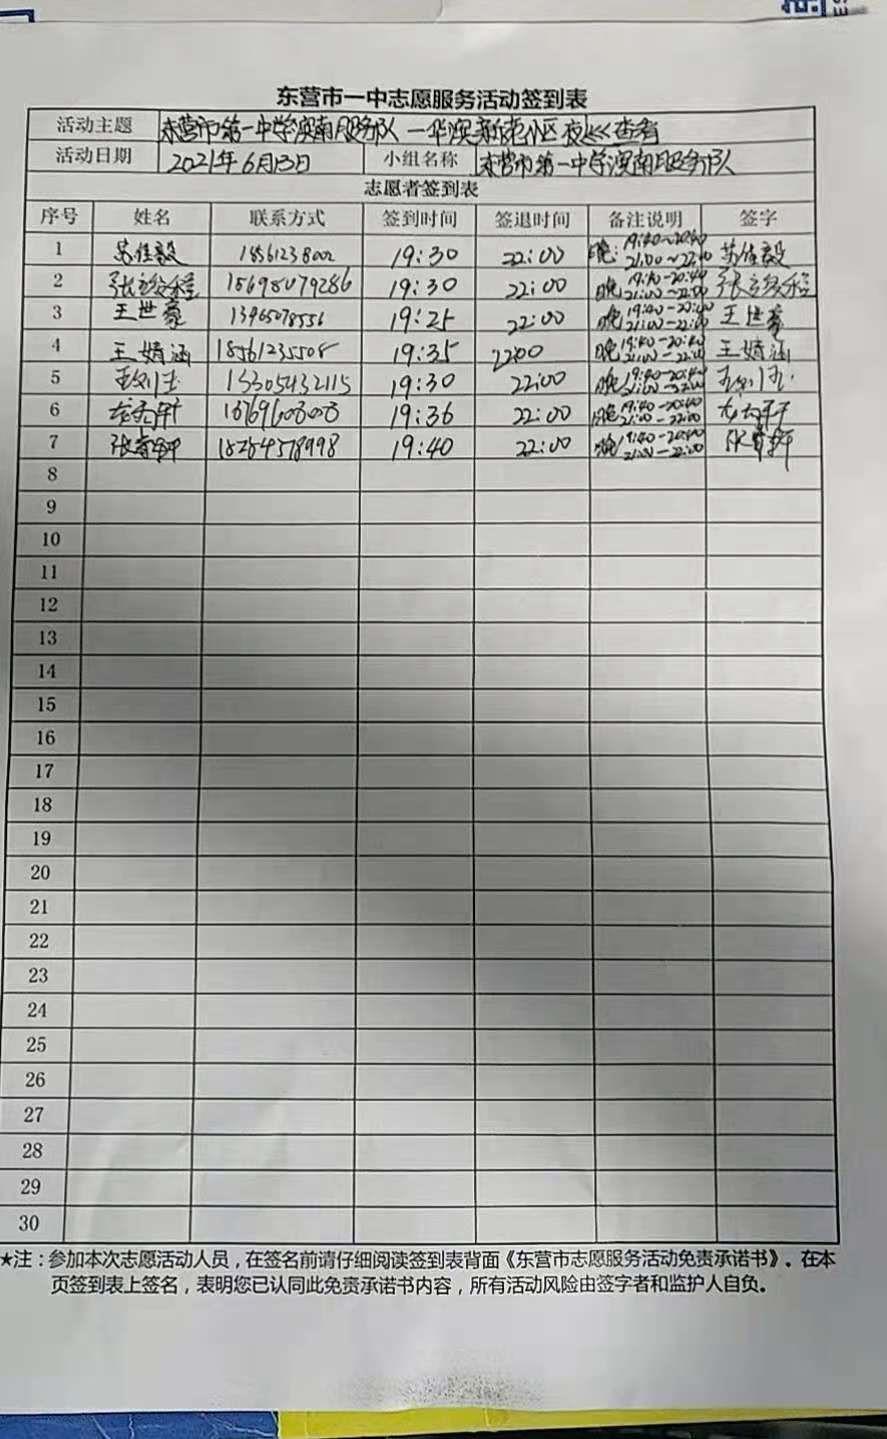 东营市一中志愿服务活动签到表
活动主题 东营市第一中学滨南服务队—华滨新苑小区夜巡查看
活动日期 2021年6月13日 小组名称 东营市第一中学滨南服务队
志愿者签到表
序号 姓名 联系方式 签到时间 签退时间 备注说明 签字
1 苏佳毅 19:30 22:00 晚:19:40~20:40 21:00~22:00 苏佳毅
2 15698079286 19:30 22:00 晚19:40-20:40 21:00~22:00
3 王世豪 13965078556 19:25 22:00 晚19:40-20:40 21:00-22:00 王世豪
4 王婧涵 18561235508 19:35 22:00 晚19:40-20:40 21:00-22:00 王婧涵
5 13305432115 19:30 22:00 晚19:40-20:40 21:00-22:00
6 19:36 22:00 晚19:40-20:40 21:00-22:00
7 18264578998 19:40 22:00 晚19:40-20:40 21:00-22:00
8
9
10
11
12
13
14
15
16
17
18
19
20
21
22
23
24
25
26
27
28
29
30
★注：参加本次志愿活动人员，在签名前请仔细阅读签到表背面《东营市志愿服务活动免责承诺书》。在本
页签到表上签名，表明您已认同此免责承诺书内容，所有活动风险由签字者和监护人自负。